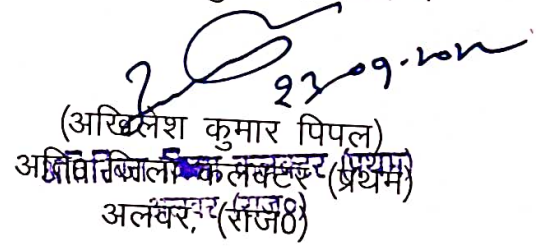 23.09.2022
(अखिलेश कुमार पिपल)
अति० जिला कलक्टर (प्रथम)
अलवर, (राज०)